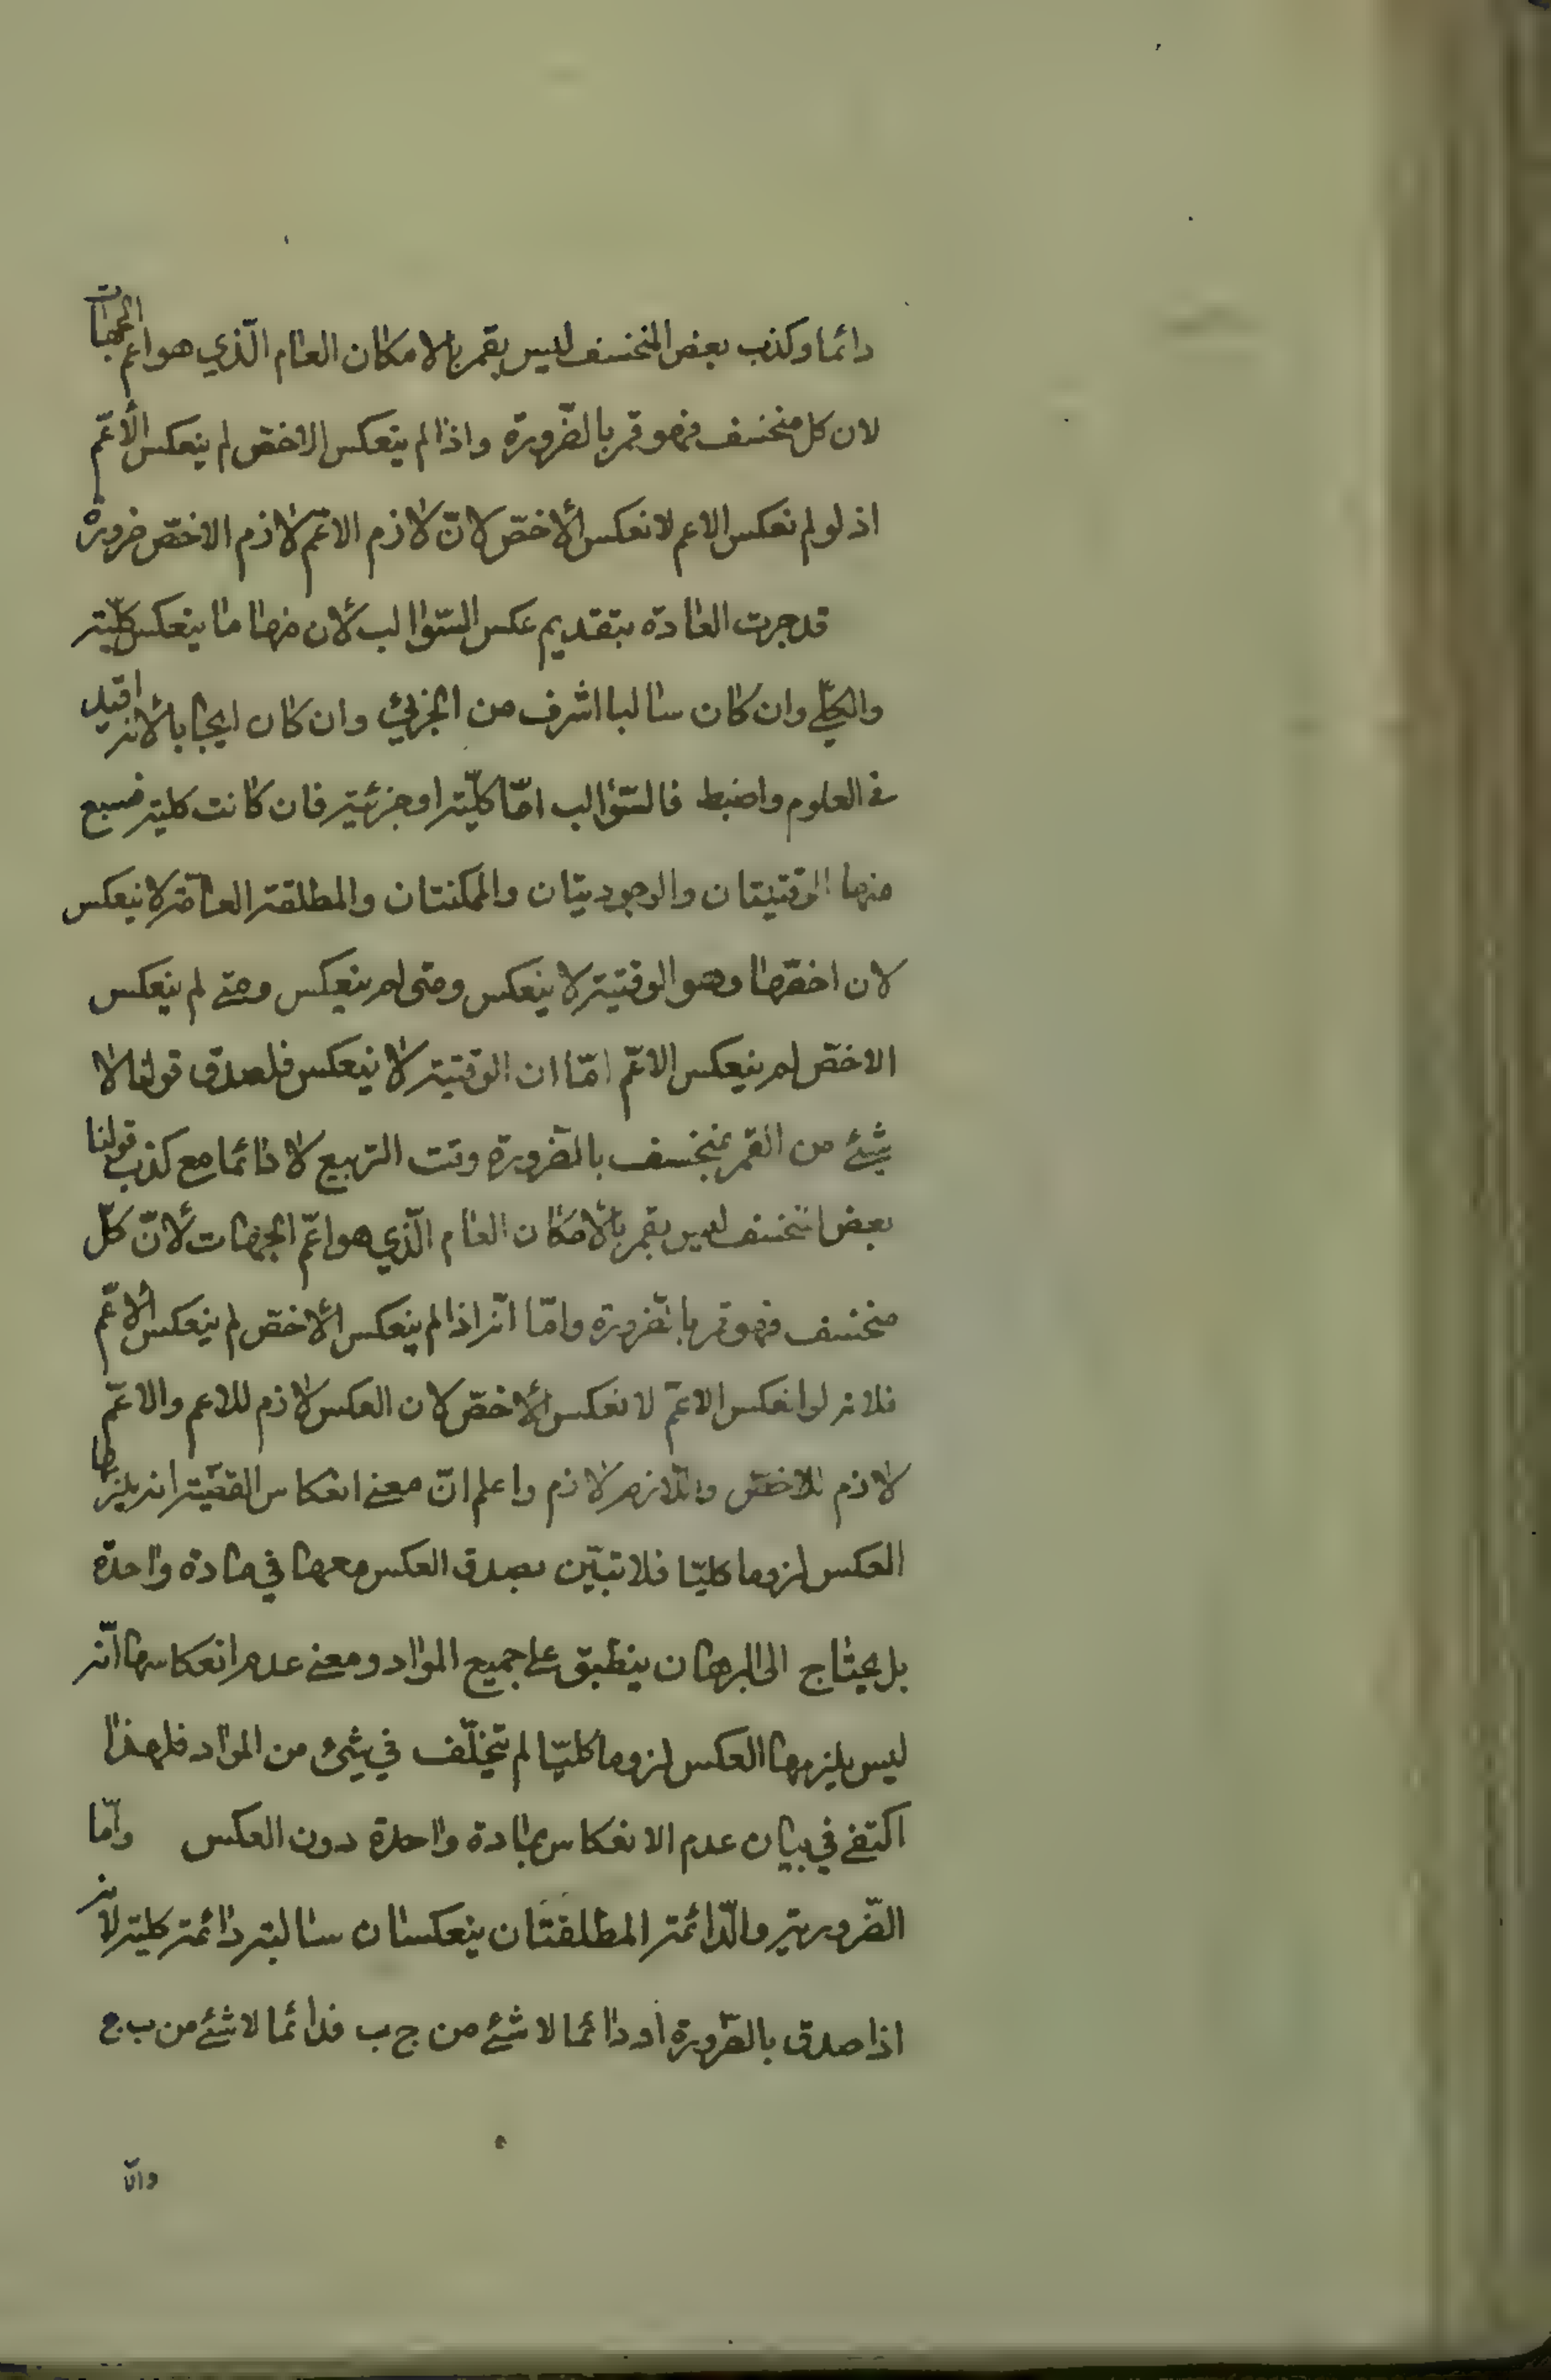 دائما وكذب بعض المنخسف ليس بقمر بالامكان العام الّذي هو اعم الجهات
لان كل منخسف فهو قمر بالضّرورة واذا لم ينعكس الاخص لم ينعكس الأعّم
اذ لو لم نعكس الاعم لانعكس الأخصّ لانّ لازم الاعّم لازم الاخصّ ضرورة
قد جرت العادة بتقديم عكس السّوالب لأن منها ما ينعكس كليّته
والكلّي وان كان سالبا اشرف من الجزئي وان كان ايجابا لأنه اقيد
في العلوم واضبط فالسّوالب امّا كلّيته او جزئيته فان كانت كليته فسبع
منها الوقتيتان والوجوديتان والممكنتان والمطلقته العامّه لا ينعكس
لان اخصّها وهو الوقتيته لا ينعكس ومتى لم ينعكس ومتى لم ينعكس
الاخصّ لم ينعكس الاعّم امّا ان الوقتيته لا ينعكس فلصدق قولنا لا
شيئ من القمر بمنخسف بالضّرورة وقت التربيع لا دائما مع كذب قولنا
بعض المنخسف ليس بقمر بالأمكان العام الّذي هو اعّم الجهات لأنّ كلّ
منخسف فهو قمر بالضّرورة وامّا انّه اذا لم ينعكس الأخصّ لم ينعكس الأعّم
فلانه لو انعكس الاعّم لانعكس الأخصّ لان العكس لازم للاعم والاعّم
لازم للاخصّ ولازم اللازم لازم واعلم انّ معنى انعكاس القضيّته انه يلزمها
العكس لزوما كليّا فلا تبّين بصدق العكس معها في مادة واحدة
بل يحتاج الى البرهان ينطبق على جميع المواد ومعنى عدم انعكاسها انّه
ليس يلزمها العكس لزوما كليّا لم تيخلّف في شيئ من الموّاد فلهذا
اكتفى في بيان عدم الانعكاس بمادة واحدة دون العكس وامّا
الضّروريته والدّائمته المطلقتان ينعكسان سالبته دائمته كليته لانه
اذا صدق بالضّرورة او دائما لا شئ من ج ب فدائما لا شئ من ب ج
والّا